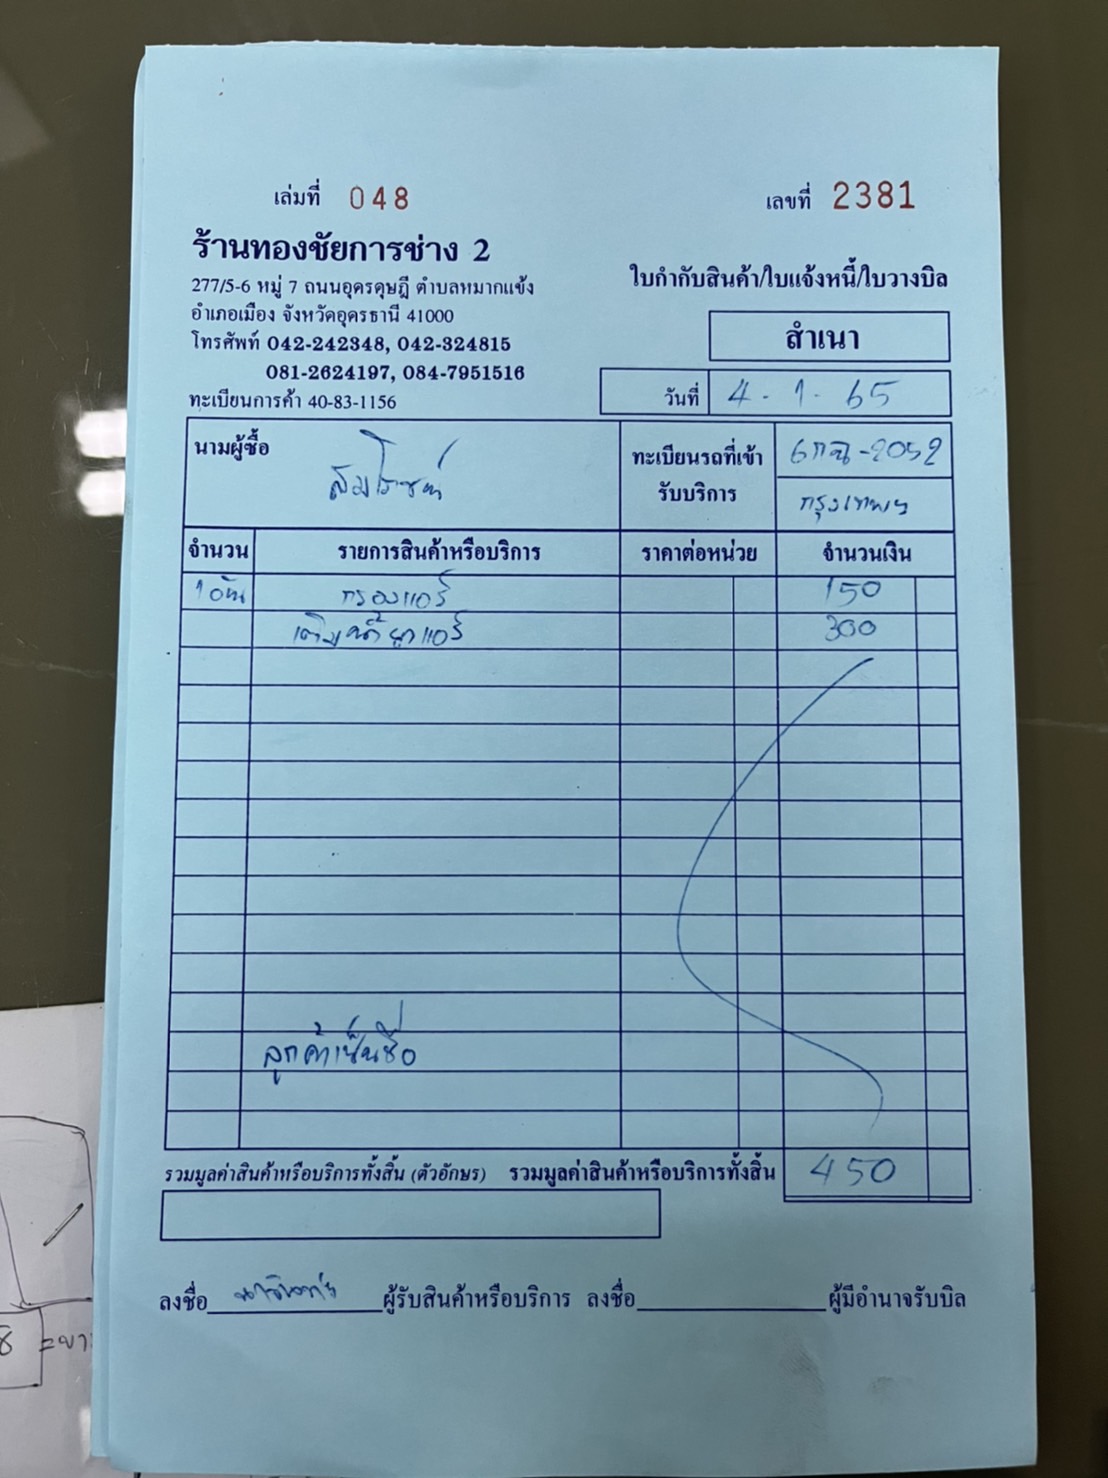 เล่มที่ 048
เลขที่ 2381
ร้านทองชัยการช่าง 2
277/5-6 หมู่ 7 ถนนอุดรดุษฎี ตำบลหมากแข้ง
อำเภอเมือง จังหวัดอุดรธานี 41000
โทรศัพท์ 042-242348, 042-324815
081-2624197, 084-7951516
ทะเบียนการค้า 40-83-1156
ใบกำกับสินค้า/ใบแจ้งหนี้/ใบวางบิล
สำเนา
วันที่ 4-1-65
นามผู้ซื้อ
ทะเบียนรถที่เข้า
รับบริการ
6กฉ-2052
กรุงเทพฯ
จำนวน รายการสินค้าหรือบริการ ราคาต่อหน่วย จำนวนเงิน
1 อัน กรองแอร์ 150
เติมน้ำยาแอร์ 300
ลูกค้าเซ็นชื่อ
รวมมูลค่าสินค้าหรือบริการทั้งสิ้น (ตัวอักษร) รวมมูลค่าสินค้าหรือบริการทั้งสิ้น 450
ลงชื่อ ผู้รับสินค้าหรือบริการ ลงชื่อ ผู้มีอำนาจรับบิล